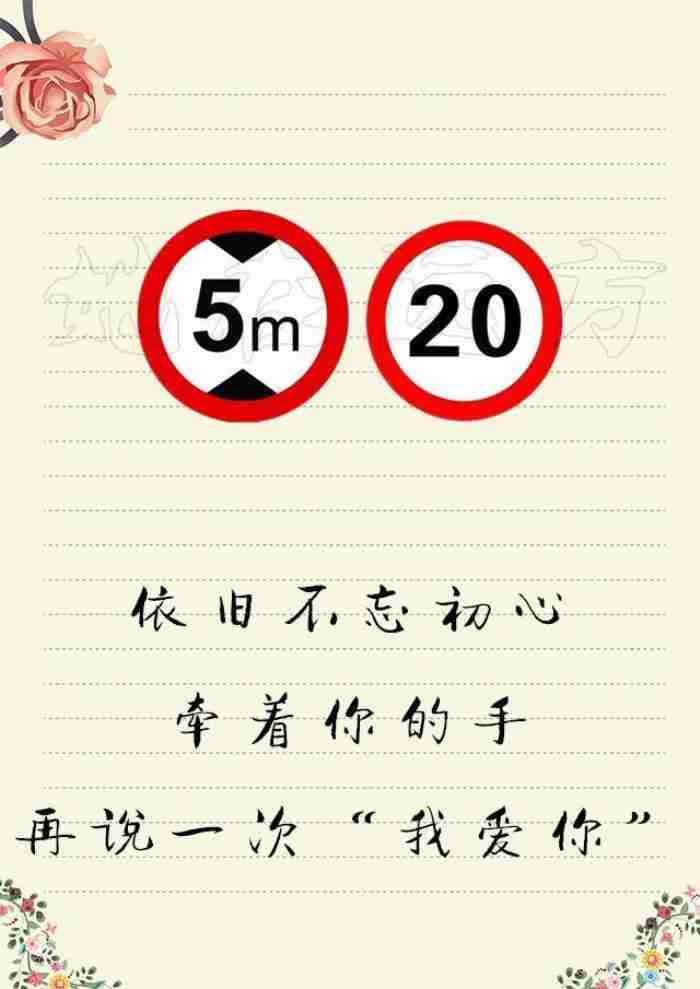 5m 20
依旧不忘初心
牵着你的手
再说一次“我爱你”